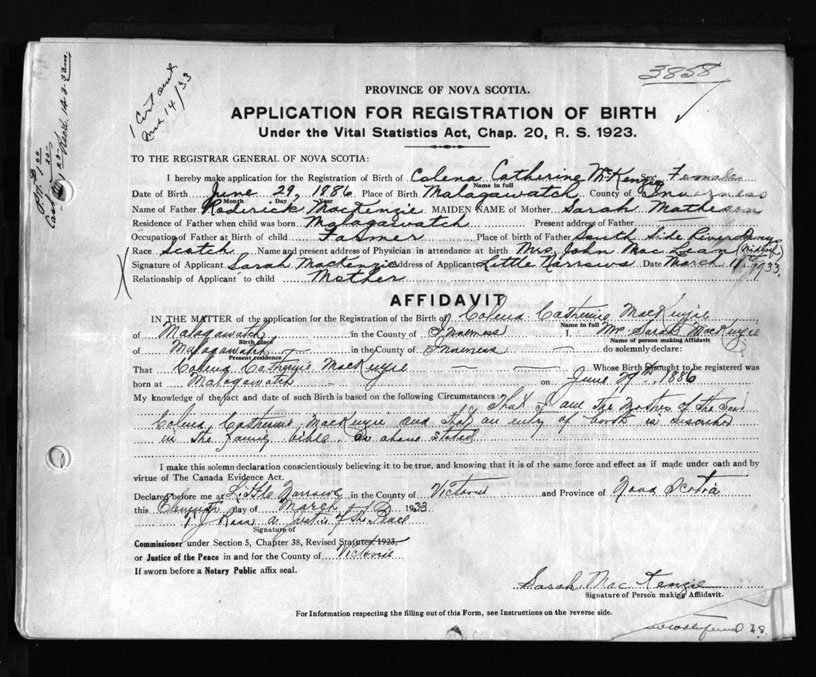 3858
1 Cert sent
14/33
PROVINCE OF NOVA SCOTIA.
APPLICATION FOR REGISTRATION OF BIRTH
Under the Vital Statistics Act, Chap. 20, R. S. 1923.
TO THE REGISTRAR GENERAL OF NOVA SCOTIA:
I hereby make application for the Registration of Birth of Colena Catherine McKenzie Sex Female
Name in full
Date of Birth June 29, 1886 Place of Birth Malagawatch County of Inverness
Month Day Year
Name of Father Roderick MacKenzie MAIDEN NAME of Mother Sarah Matheson
Residence of Father when child was born Malagawatch Present address of Father
Occupation of Father at Birth of child Farmer Place of birth of Father South Side River Denys
Race Scotch Name and present address of Physician in attendance at birth Mrs. John MacLean (Midwife)
Signature of Applicant Sarah MacKenzie Address of Applicant Little Narrows Date March 11th 1933.
Relationship of Applicant to child Mother
AFFIDAVIT
IN THE MATTER of the application for the Registration of the Birth of Colena Catherine MacKenzie
Name in full
of Malagawatch in the County of Inverness I, Mrs Sarah MacKenzie
Birth place Name of person making Affidavit
of Malagawatch in the County of Inverness do solemnly declare:
Present residence
That Colena Catherine MacKenzie Whose Birth sought to be registered was
born at Malagawatch on June 29th, 1886
My knowledge of the fact and date of such Birth is based on the following Circumstances: That I am the Mother of the said
Colena Catherine MacKenzie and that an entry of birth is inscribed
in the family bible as above stated
I make this solemn declaration conscientiously believing it to be true, and knowing that it is of the same force and effect as if made under oath and by
virtue of The Canada Evidence Act.
Declared before me at Little Narrows in the County of Victoria and Province of Nova Scotia
this Eleventh day of March A D 1933
J Ross a Justice of the Peace
Signature of
Commissioner under Section 5, Chapter 38, Revised Statutes 1923.
or Justice of the Peace in and for the County of Victoria
If sworn before a Notary Public affix seal.
Sarah MacKenzie
Signature of Person making Affidavit.
For Information respecting the filling out of this Form, see Instructions on the reverse side.